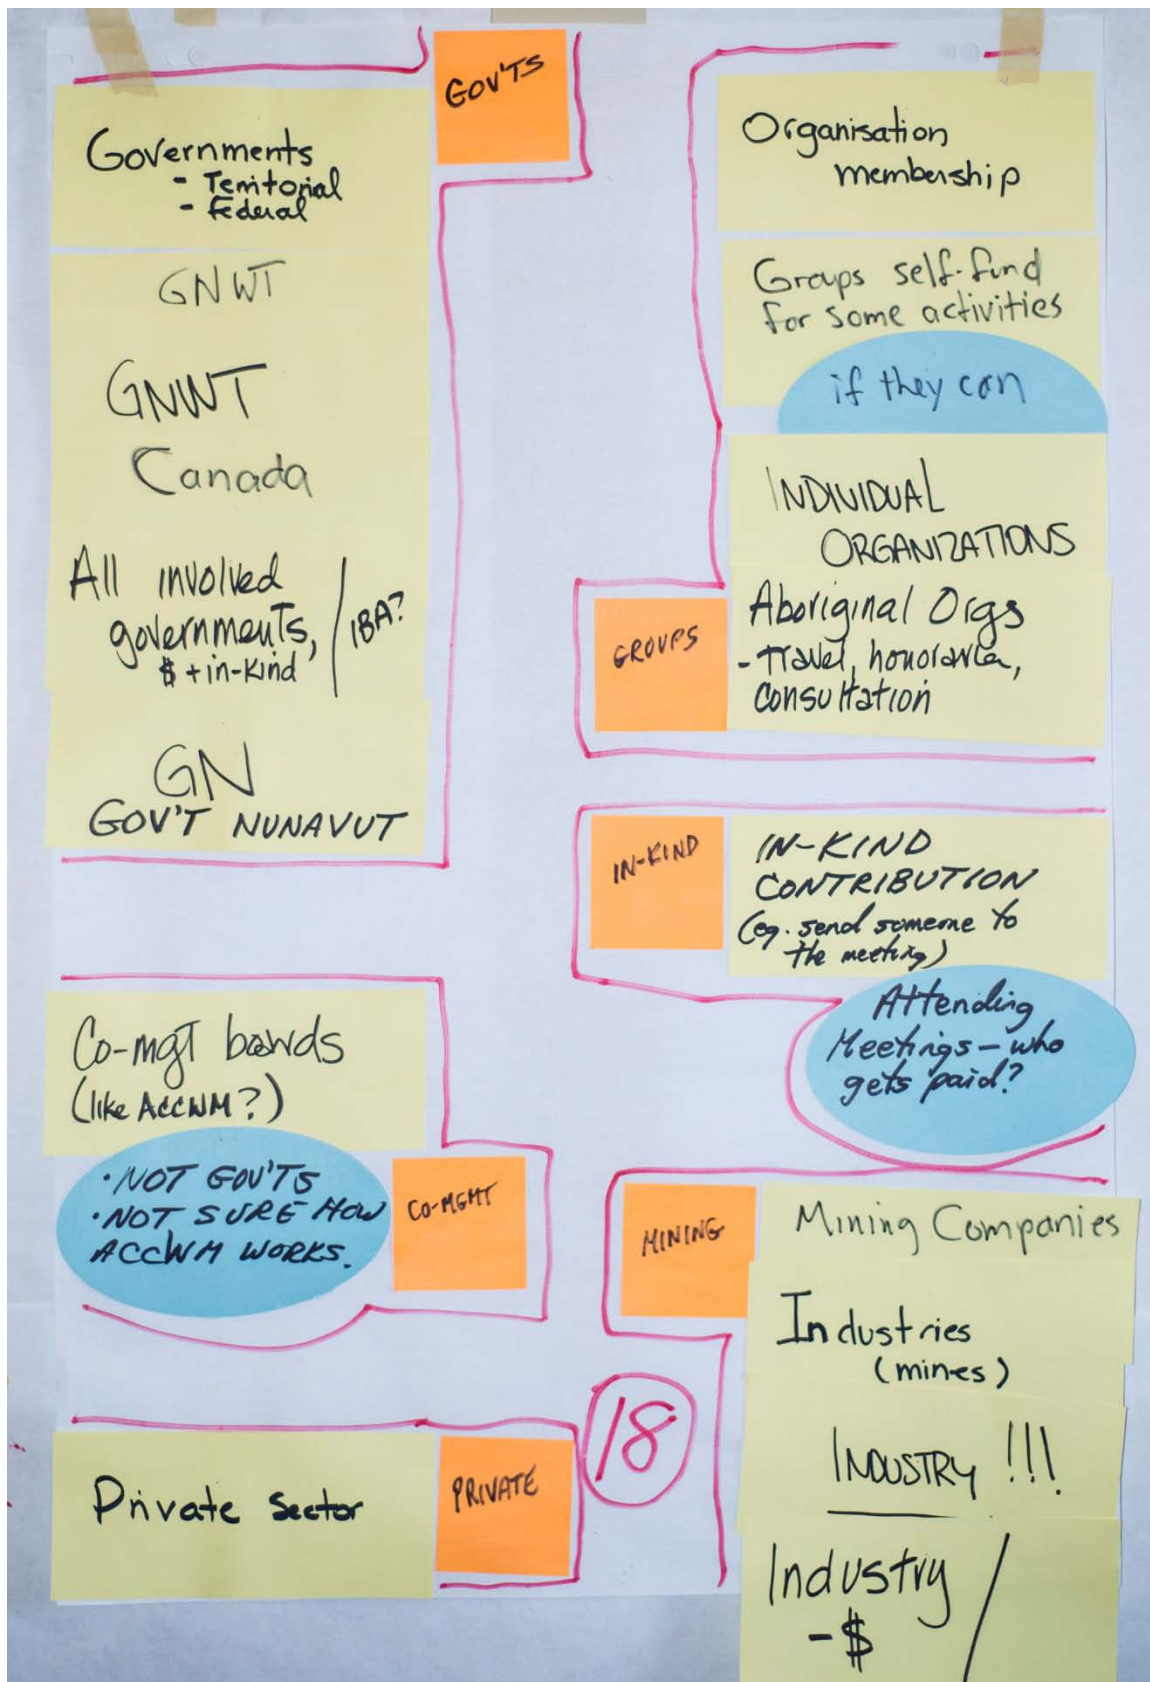 GOV'TS
Governments
- Territorial
- Federal
GNWT
GNWT
Canada
All involved
governments,
$ + in-kind
/ IBA?
GN
GOV'T NUNAVUT
Co-mgt boards
(like ACCWM?)
• NOT GOV'TS
• NOT SURE HOW
ACCWM WORKS.
CO-MGMT
Private Sector
PRIVATE
18
Organisation
membership
Groups self-fund
for some activities
if they can
INDIVIDUAL
ORGANIZATIONS
GROUPS
Aboriginal Orgs
- Travel, honoraria,
consultation
IN-KIND
IN-KIND
CONTRIBUTION
(eg. send someone to
the meeting)
Attending
Meetings - who
gets paid?
MINING
Mining Companies
Industries
(mines)
INDUSTRY !!!
Industry /
- $